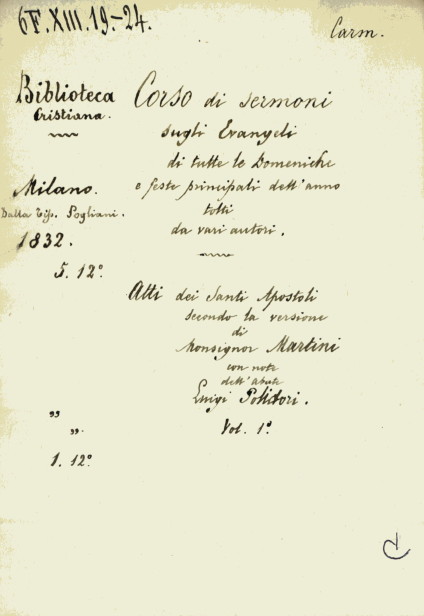 6F.XIII.19.-24.
Carm.
Biblioteca
Cristiana.
Milano.
Dalla Tip. Pogliani.
1832.
5. 12°.
Corso di sermoni
sugli Evangeli
di tutte le Domeniche
e feste principali dell'anno
tolti
da vari autori.
Atti dei Santi Apostoli
secondo la versione
di
Monsignor Martini
con note
dell'Abate
Luigi Polidori.
Vol. 1°.
„
„.
1. 12°.